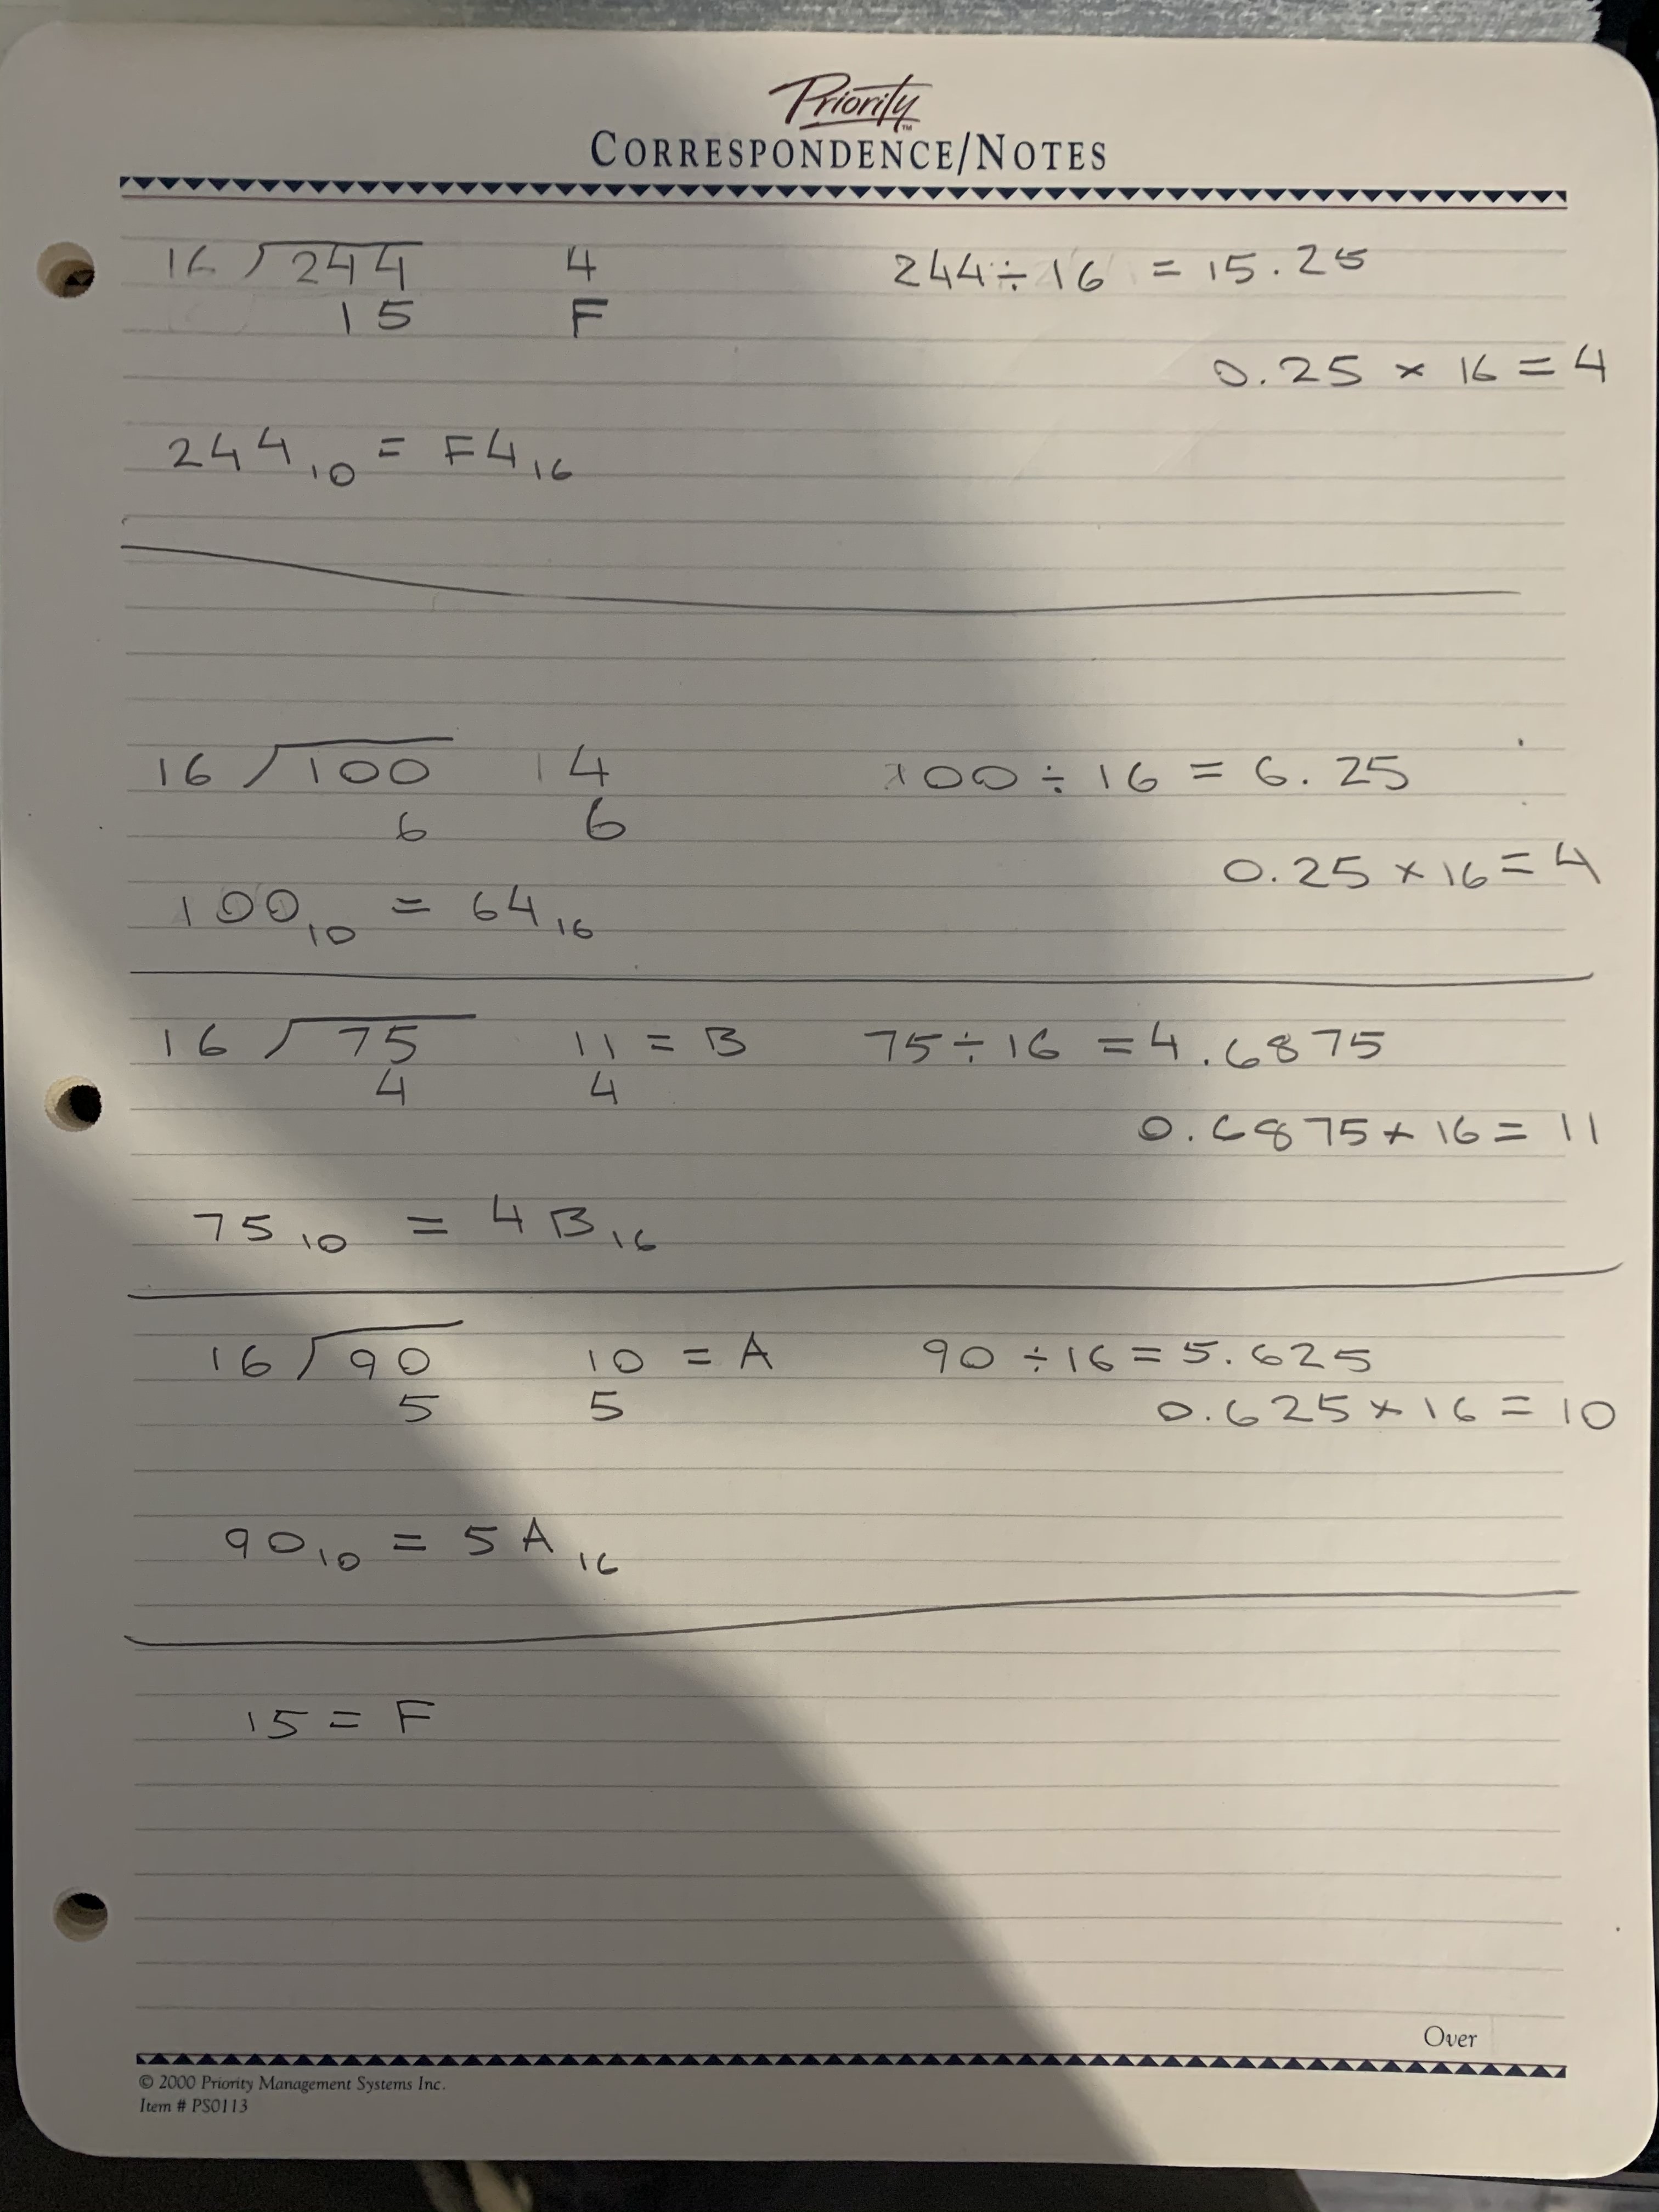 Priority™
CORRESPONDENCE/NOTES
16 ) 244 4 244 ÷ 16 = 15.25
15 F
0.25 × 16 = 4
244₁₀ = F4₁₆
16 ) 100 14 100 ÷ 16 = 6.25
6 6
0.25 × 16 = 4
100₁₀ = 64₁₆
16 ) 75 11 = B 75 ÷ 16 = 4.6875
4 4
0.6875 × 16 = 11
75₁₀ = 4B₁₆
16 ) 90 10 = A 90 ÷ 16 = 5.625
5 5 0.625 × 16 = 10
90₁₀ = 5A₁₆
15 = F
Over
© 2000 Priority Management Systems Inc.
Item # PS0113